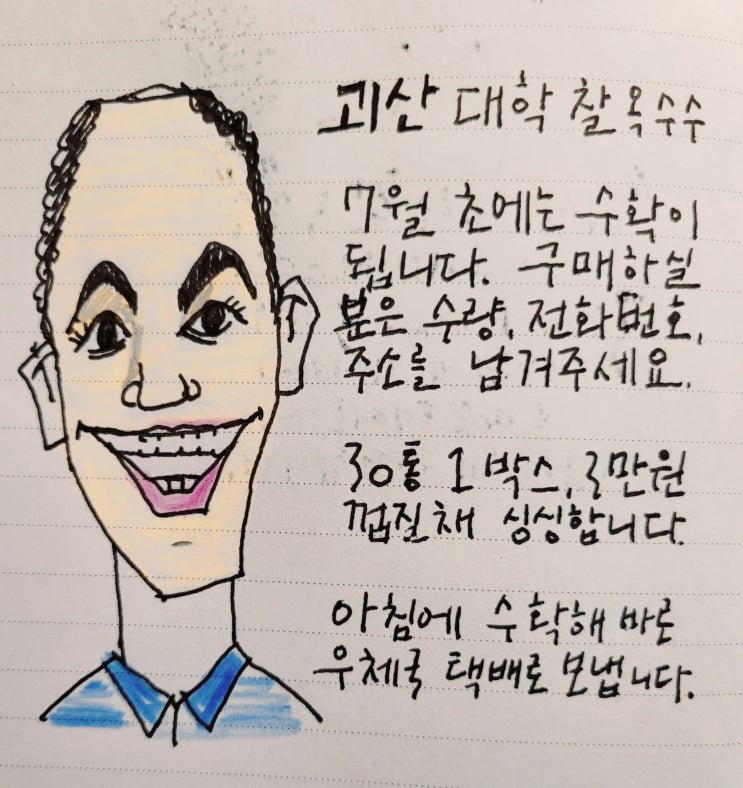 괴산 대학 찰옥수수
7월 초에는 수확이
됩니다. 구매하실
분은 수량, 전화번호,
주소를 남겨주세요.
30통 1박스, 3만원
껍질채 싱싱합니다.
아침에 수확해 바로
우체국 택배로 보냅니다.